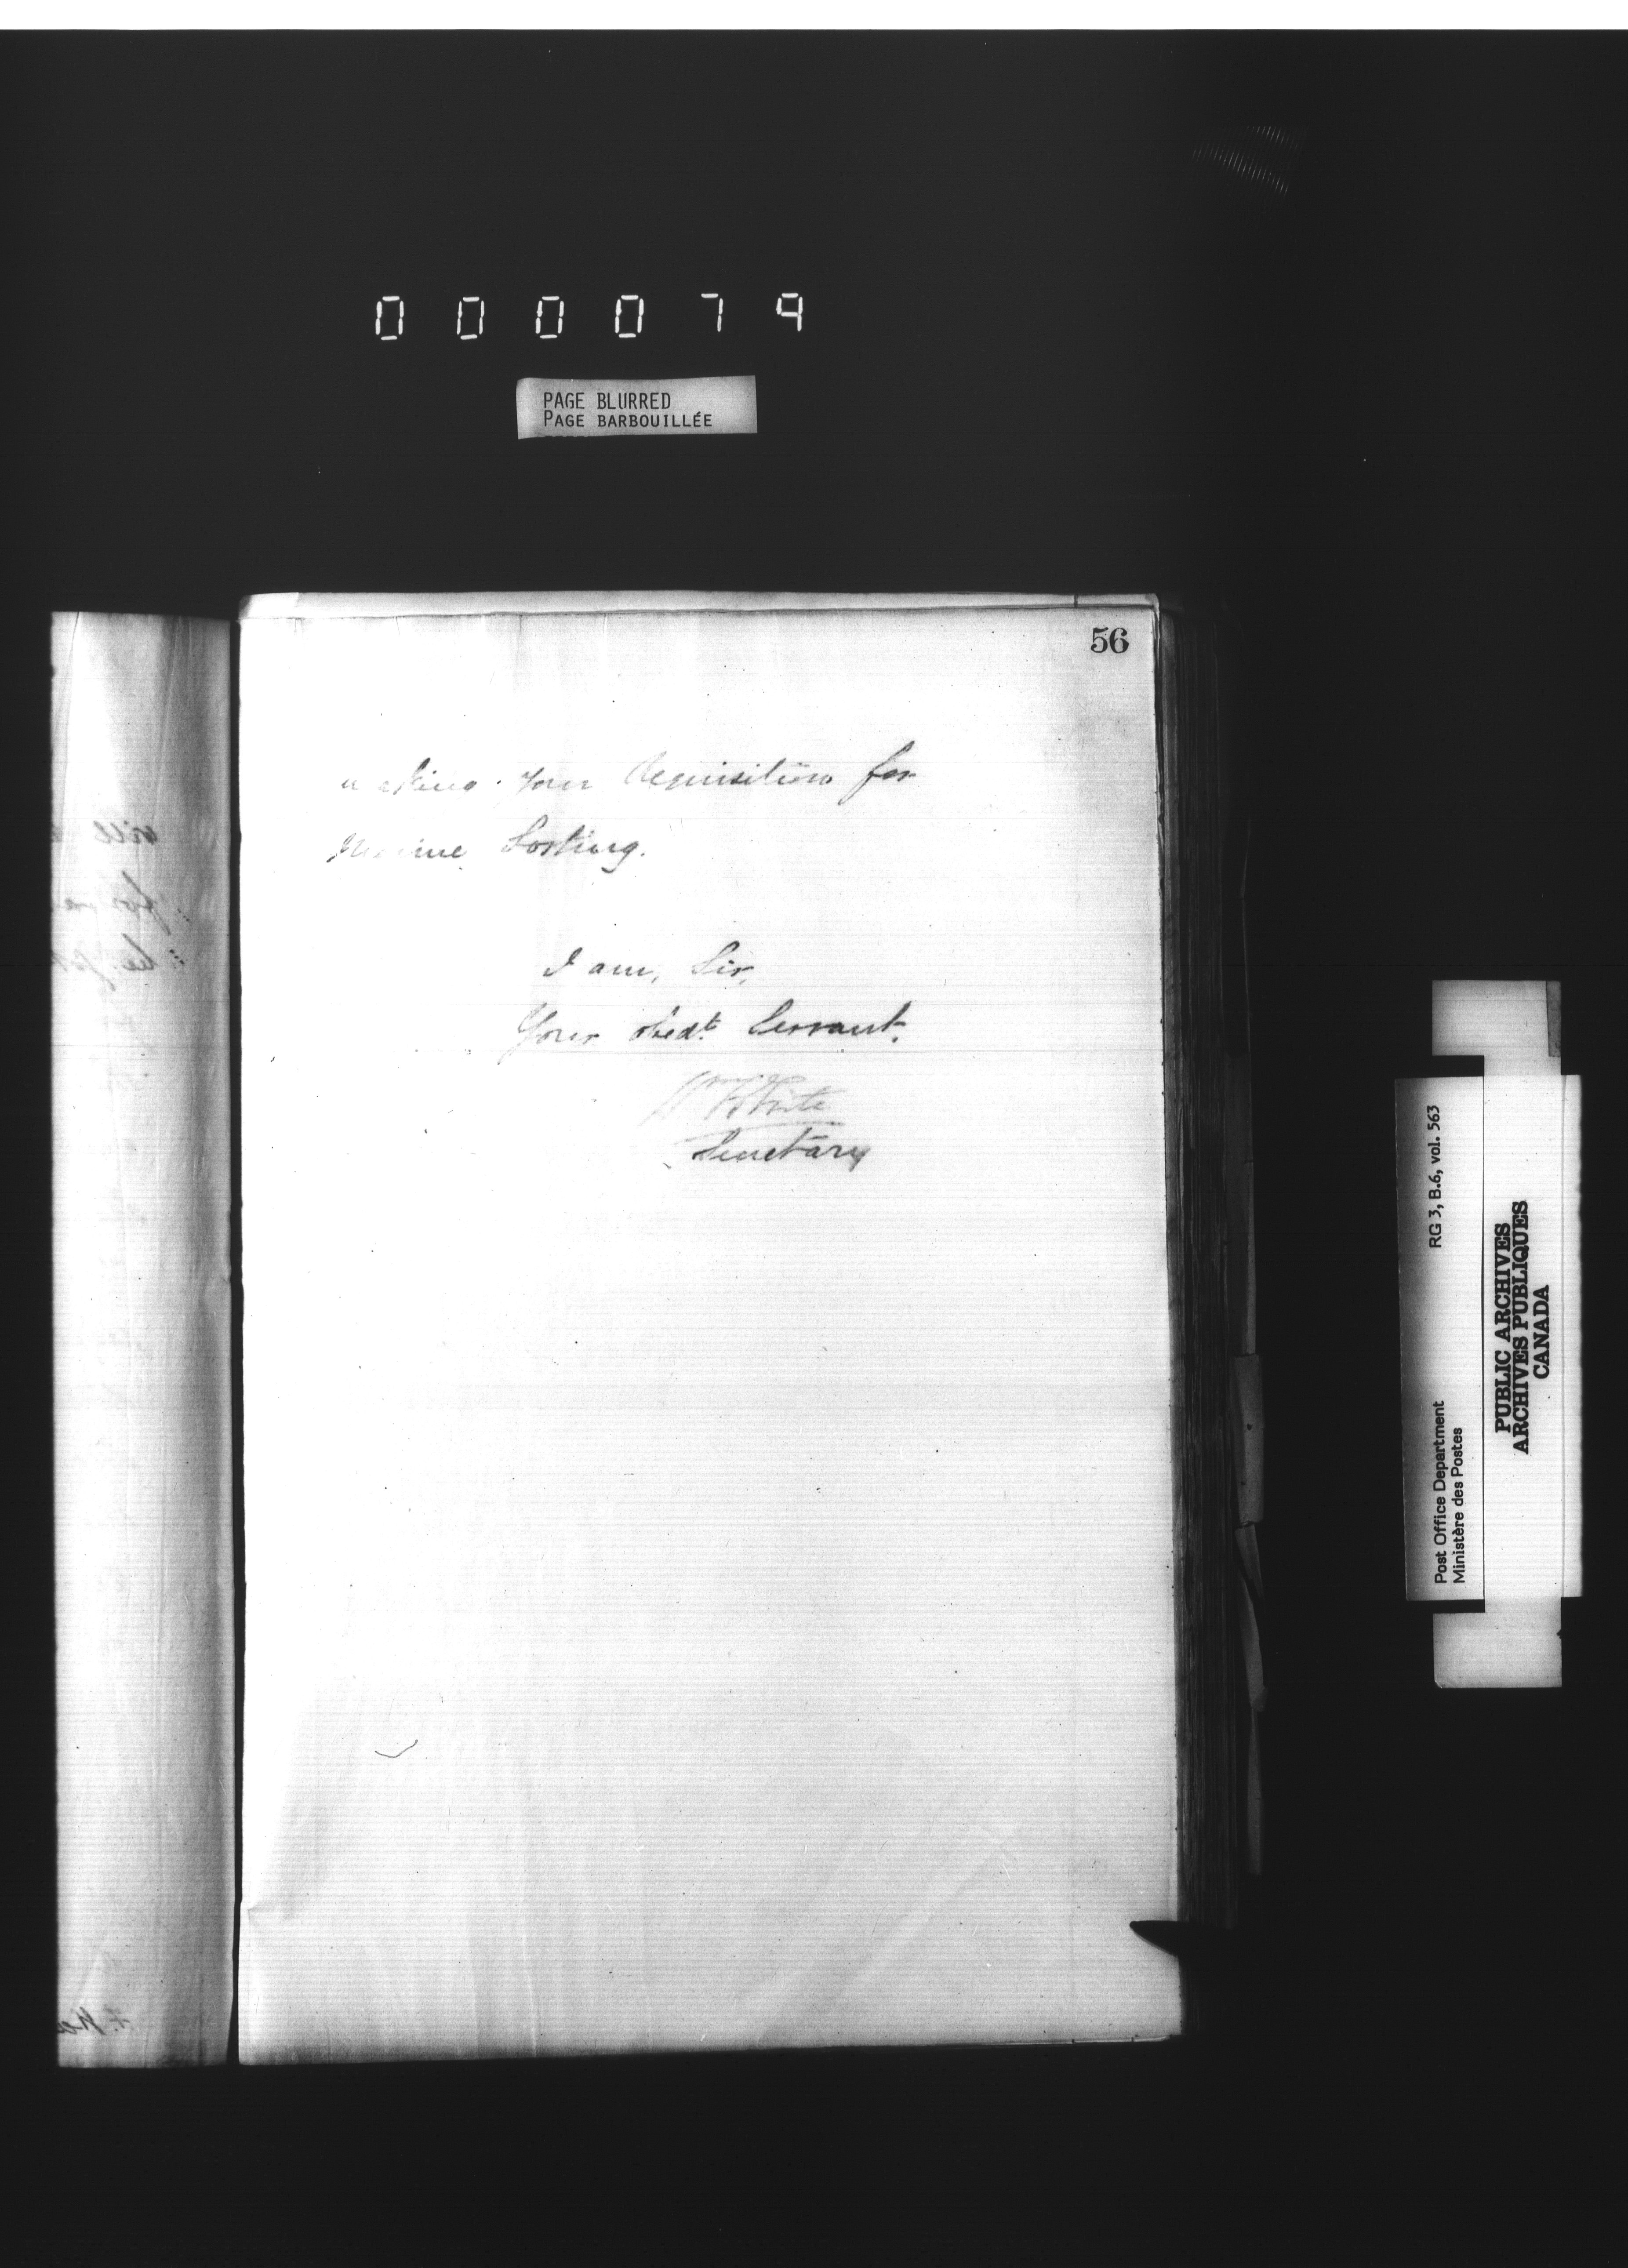 000079
PAGE BLURRED
PAGE BARBOUILLÉE
56
making your Requisition for
Sorting.
I am, Sir,
Your obedt. Servant.
Wm White
Secretary
RG 3, B.6, vol. 563
Post Office Department
Ministère des Postes
PUBLIC ARCHIVES
ARCHIVES PUBLIQUES
CANADA